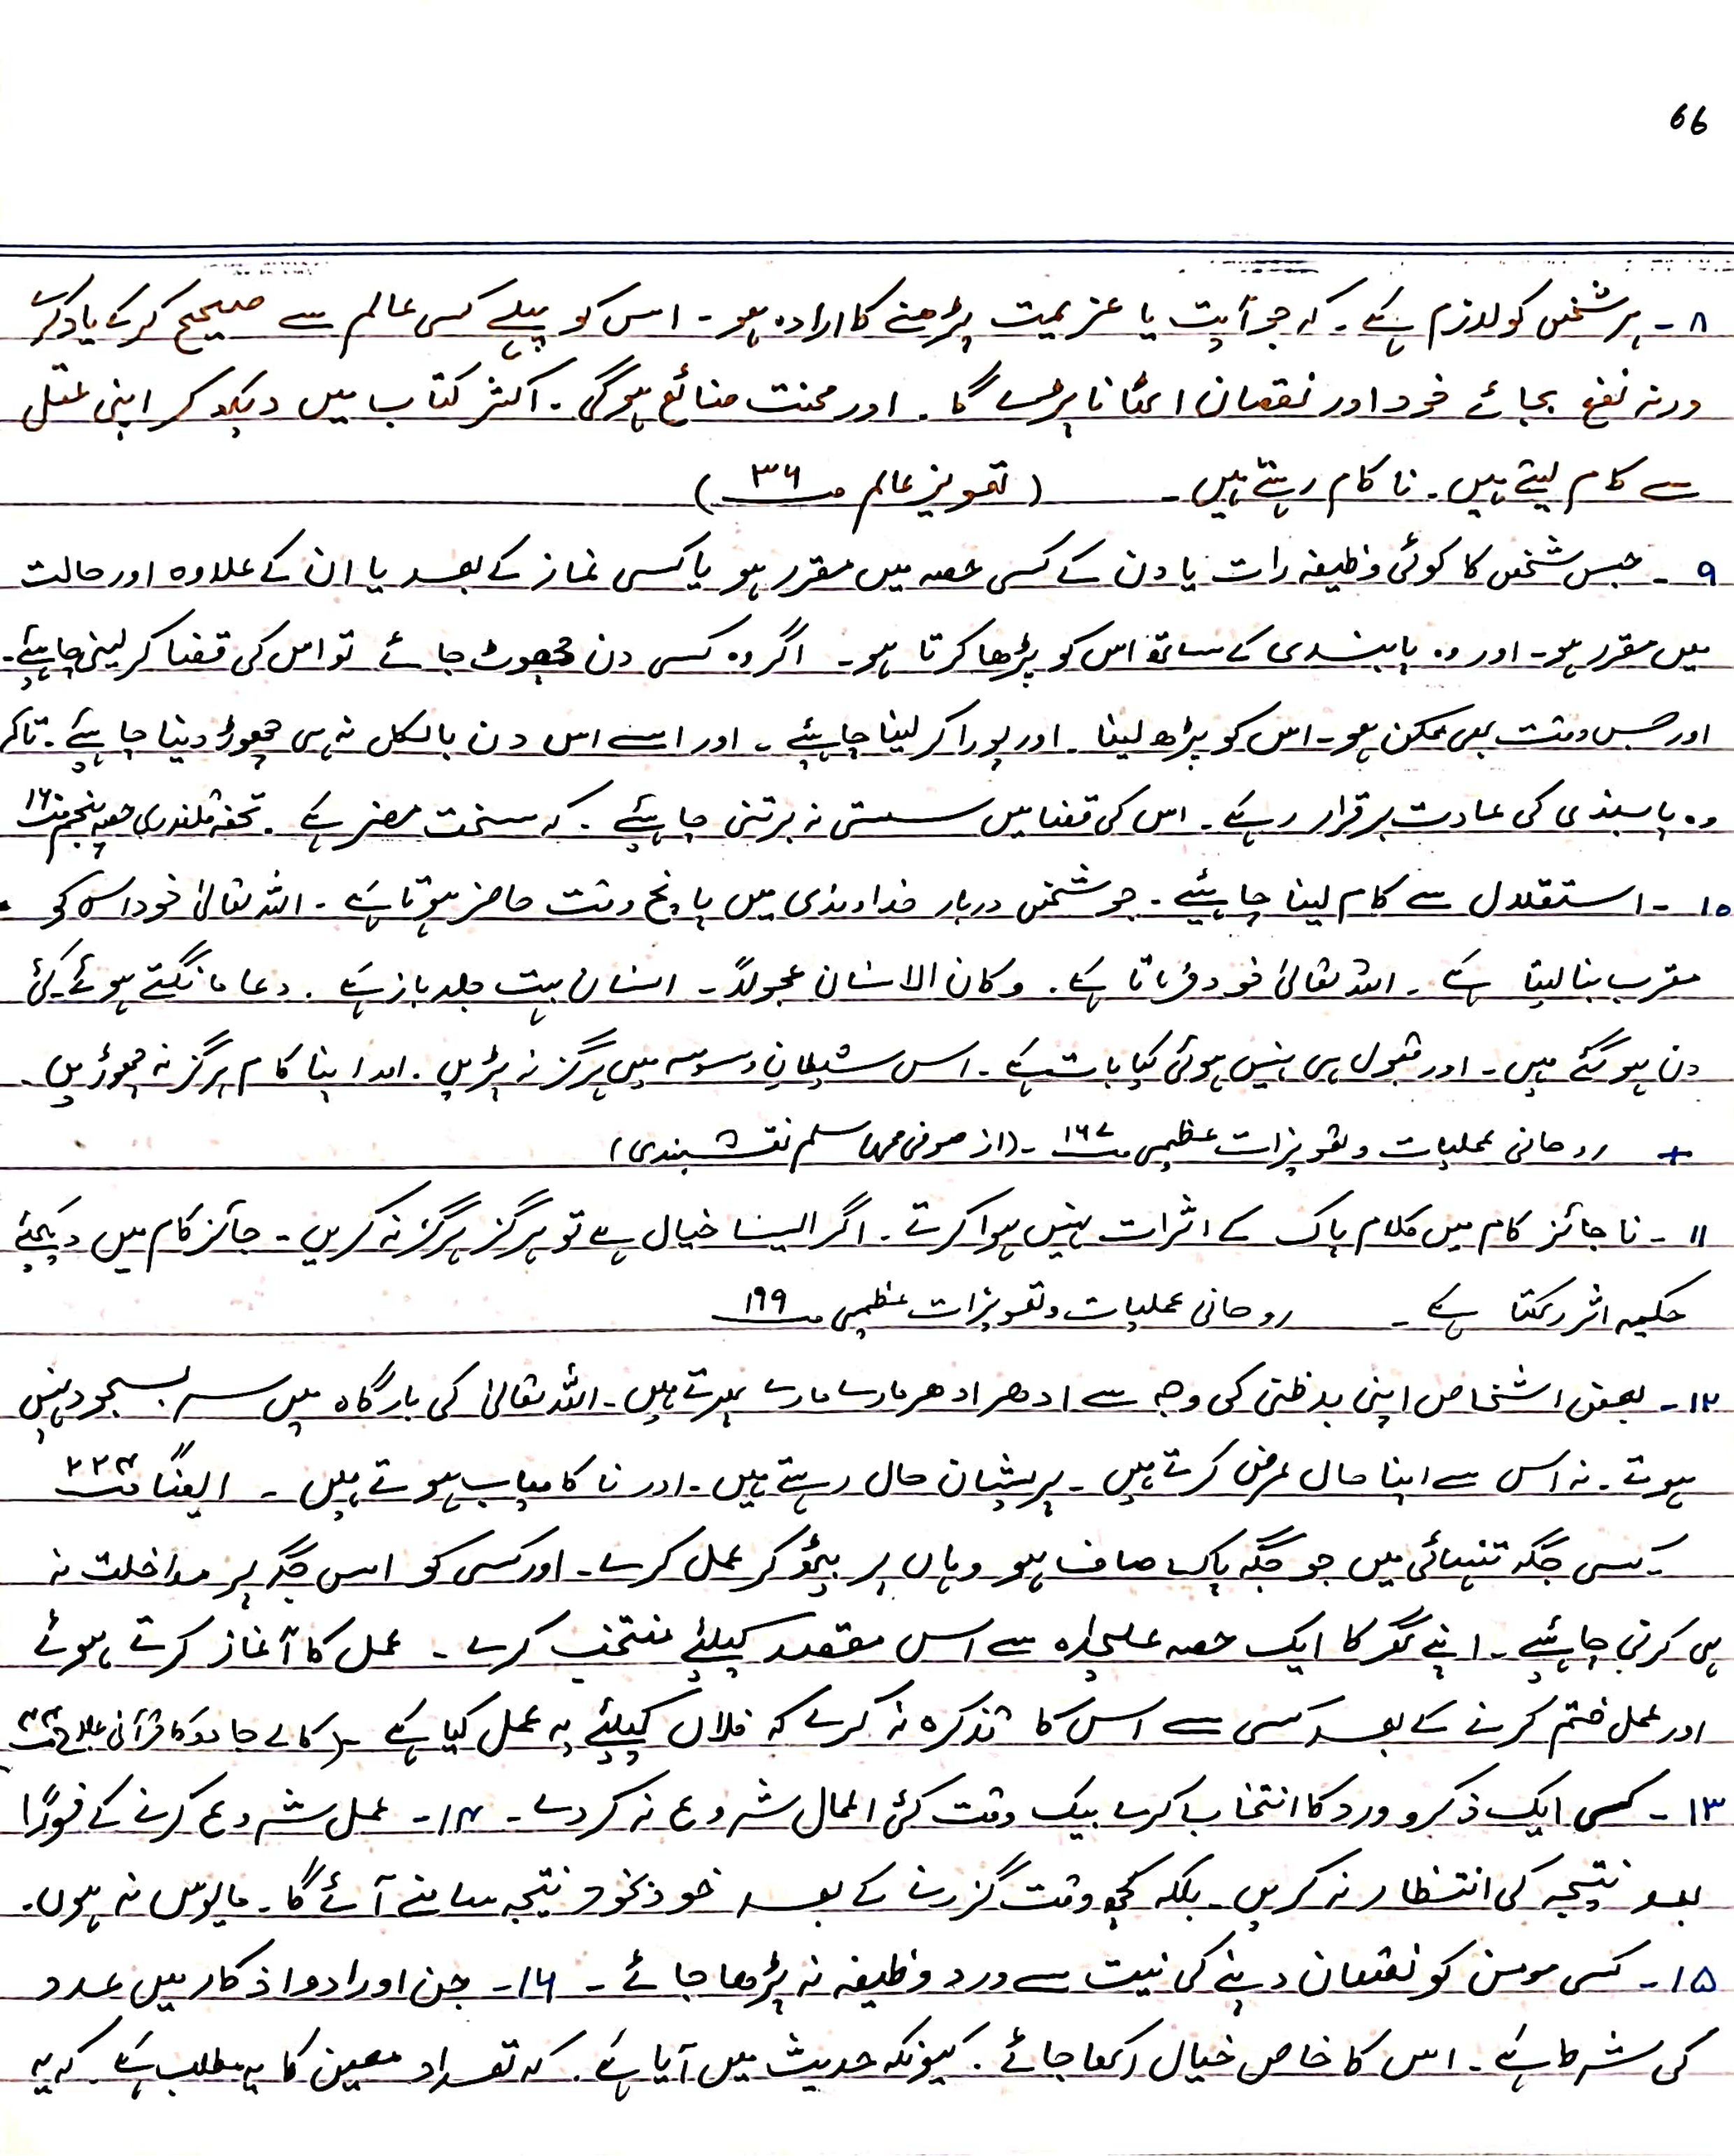 66
۸۔ ہر شخص کو لازم ہے۔ کہ جو آیت یا عزیمت پڑھنے کا ارادہ ہو۔ اس کو پہلے کسی عالم سے صحیح کرکے یاد کرے
ورنہ نفع بجائے خود اور نقصان اٹھانا پڑے گا۔ اور محنت ضائع ہوگی۔ اکثر کتاب میں دیکھ کر اپنی عقل
سے کام لیتے ہیں۔ ناکام رہتے ہیں۔ (تعویذ عالم صـ ۳۶)
۹۔ جس شخص کا کوئی وظیفہ رات یا دن کے کسی حصہ میں مقرر ہو یا کسی نماز کے بعد یا ان کے علاوہ اور حالت
میں مقرر ہو۔ اور وہ پابندی کے ساتھ اس کو پڑھا کرتا ہو۔ اگر وہ کسی دن چھوٹ جائے تو اس کی قضا کر لینی چاہیئے۔
اور جس وقت بھی ممکن ہو۔ اس کو پڑھ لینا۔ اور پورا کر لینا چاہیئے۔ اور اسے اس دن بالکل نہ ہی چھوڑ دینا چاہیئے۔ تاکہ
وہ پابندی کی عادت برقرار رہے۔ اس کی قضا میں سستی نہ برتنی چاہیئے۔ کہ سخت مضر ہے۔ تحفہ قلندری حصہ پنجم صـ ۱۶
۱۰۔ استقلال سے کام لینا چاہیئے۔ جو شخص دربار خداوندی میں پانچ وقت حاضر ہوتا ہے۔ اللہ تعالیٰ خود اس کو
مقرب بنا لیتا ہے۔ اللہ تعالیٰ خود فرماتا ہے۔ وکان الانسان عجولاً۔ انسان بہت جلد باز ہے۔ دعا مانگتے ہوئے کئی
دن ہو گئے ہیں۔ اور قبول ہی نہیں ہوئی کیا بات ہے۔ اس شیطانی وسوسہ میں ہرگز نہ پڑیں۔ اور اپنا کام ہرگز نہ چھوڑیں۔
+ روحانی عملیات و تعویزات عظیمی صـ ۱۶۷۔ (از صوفی محمد اسلم نقشبندی)
۱۱۔ ناجائز کام میں کلام پاک کے اثرات نہیں ہوا کرتے۔ اگر ایسا خیال ہے تو ہرگز ہرگز نہ کریں۔ جائز کام میں دیکھئے
حکیمہ اثر رکھتا ہے۔ روحانی عملیات و تعویزات عظیمی صـ ۱۹۹
۱۲۔ بعض اشخاص اپنی بدظنی کی وجہ سے ادھر ادھر مارے مارے پھرتے ہیں۔ اللہ تعالیٰ کی بارگاہ میں سر بسجود نہیں
ہوتے۔ نہ اس سے اپنا حال عرض کرتے ہیں۔ پریشان حال رہتے ہیں۔ اور ناکامیاب ہوتے ہیں۔ ایضاً صـ ۲۲۳
کسی جگہ تنہائی میں جو جگہ پاک صاف ہو وہاں پر بیٹھ کر عمل کرے۔ اور کسی کو اس جگہ پر مداخلت نہ
ہی کرنی چاہئیے۔ اپنے گھر کا ایک حصہ علیحدہ سے اس مقصد کیلئے منتخب کرے۔ عمل کا آغاز کرتے ہوئے
اور عمل ختم کرنے کے بعد کسی سے اس کا تذکرہ نہ کرے کہ فلاں کیلئے یہ عمل کیا ہے۔ (کالے جادو کا قرآنی علاج
۱۳۔ کسی ایک ذکر و ورد کا انتخاب کرے بیک وقت کئی اعمال شروع نہ کر دے۔ ۱۴۔ عمل شروع کرنے کے فوراً
بعد نتیجہ کی انتظار نہ کریں۔ بلکہ کچھ وقت گزرنے کے بعد خود بخود نتیجہ سامنے آئے گا۔ مایوس نہ ہوں۔
۱۵۔ کسی مومن کو نقصان دینے کی نیت سے ورد وظیفہ نہ پڑھا جائے۔ ۱۶۔ جن اوراد و اذکار میں عدد
کی شرط ہے۔ اس کا خاص خیال رکھا جائے۔ کیونکہ حدیث میں آیا ہے۔ کہ تعداد معین کا یہ مطلب ہے۔ کہ یہ